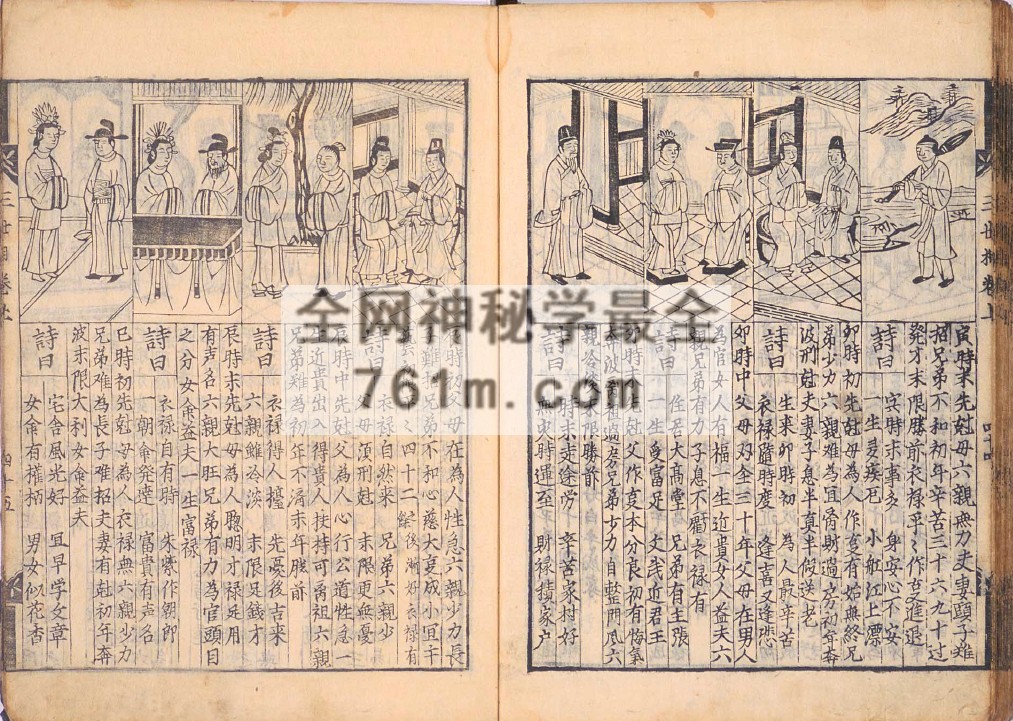 三世相卷上
四十四
寅時末先尅母六親無力夫妻頭子难
招兄弟不和初年辛苦三十六九十过
發才末限勝前衣禄平〻作吏進退
詩曰
寅時末事多 身安心不安
一生多疾厄 小舡江上漂
卯時初先尅母為人作事有始無終兄
弟少力六親难為宜
夫妻子息半真半假送老
詩曰
生来卯時初 為人最辛苦
衣禄隨時度 逢喜又逢悲
卯時中父母双全三十年父母在男人
為官女人有福一生近貴女人益夫六
親兄弟有力子息不
衣禄有
詩曰
住居大高堂 兄弟有主張
一生多富足 文武近君王
親冷後末限勝前
詩曰
時末末途劳 辛苦家村好
時運至 財禄積家户
全网神秘学最全
761m.com
三世相卷上
四十五
寅時初父母在為人性急六親少力長
兄弟不和心慈大哀成小宜干
四十二
後漸好衣禄有
詩曰
衣禄自然来 兄弟六親少
父母須刑尅 末限更無憂
辰時中先尅父為人心行公道性急一
生近貴出入得貴人扶持可离祖六親
兄弟难為初年不济末年勝前
詩曰
衣禄得人擡 先憂後吉来
六親雖冷淡 末限足錢才
辰時末先尅母為人聪明才禄足用
有声名六親大旺兄弟有力為官顕目
之分女命益夫一生富禄
詩曰
衣禄自有時 朱紫作朝郎
一朝命発達 富貴有声名
巳時初先尅母為人衣禄無六親少力
兄弟难為長子难招夫妻有尅初年奔
波末限大利女命益夫
詩曰
宅舎風光好 宜早学文章
女命有權柄 男女似花香